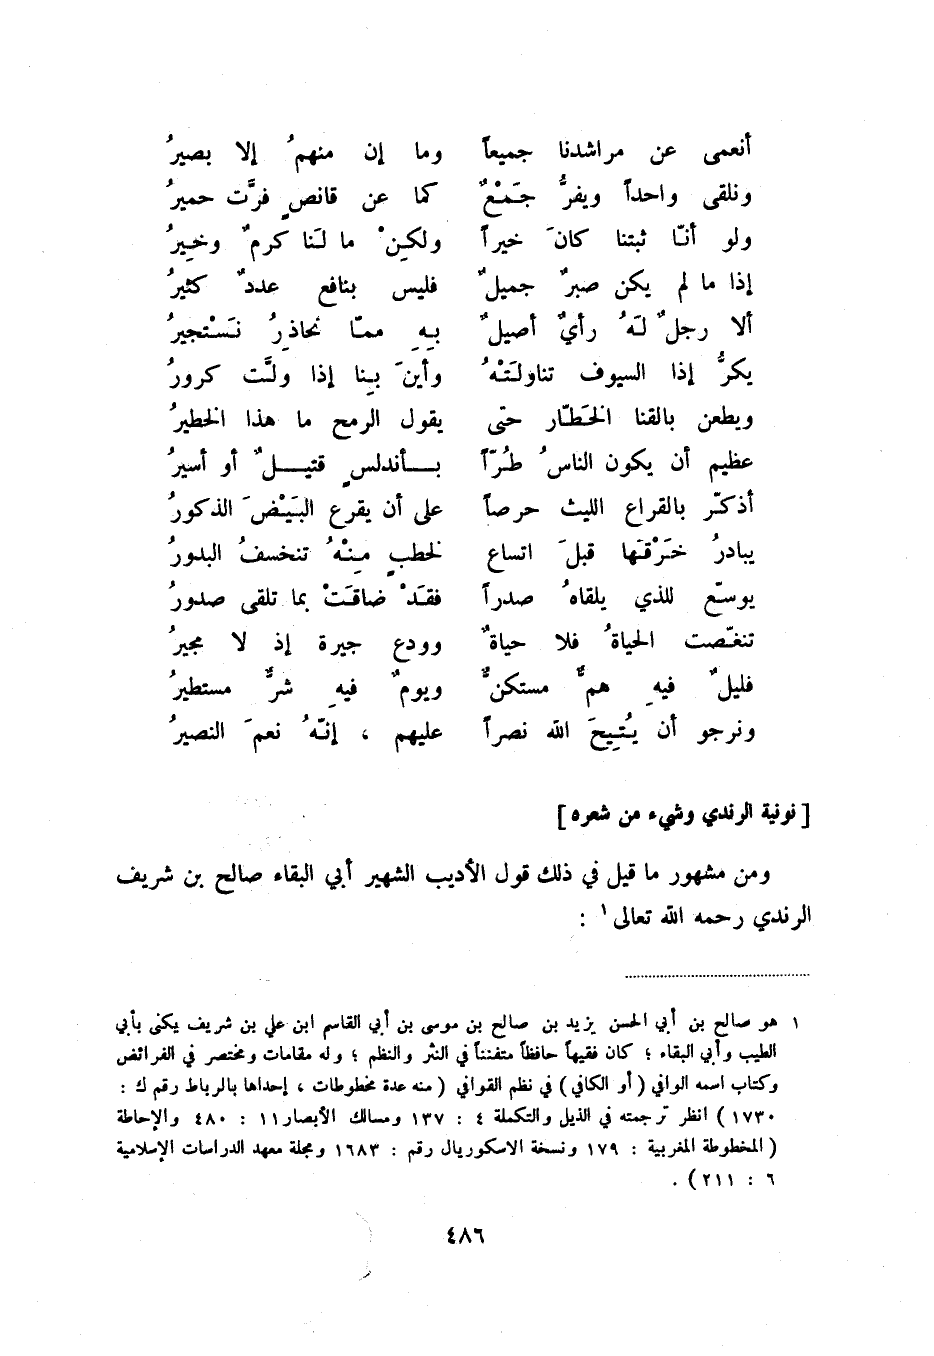 أنعمى عن مراشدنا جميعاً وما إن منهمُ إلا بصيرُ
ونلقى واحداً ويفرُّ جَمَعْ كما عن قانصٍ فرَّت حميرُ
ولو أنّا ثبتنا كانَ خيراً ولكِنْ ما لَنا كرمٌ وخِيرُ
إذا ما لم يكن صبرٌ جميلٌ فليس بنافع عددٌ كثيرُ
ألا رجلٌ لَهُ رأيٌ أصيلٌ بِهِ ممّا نحاذِرُ نَسْتجيرُ
يكرُّ إذا السيوف تناولَتْهُ وأينَ بِنا إذا ولَّت كرورُ
ويطعن بالقنا الخَطّار حتى يقول الرمح ما هذا الخطيرُ
عظيم أن يكون الناسُ طُرّاً بــأندلسٍ قتيــلٌ أو أسيرُ
أذكّر بالقراع الليث حرصاً على أن يقرع البَيْضَ الذكورُ
يبادرُ خَرْقَها قبلَ اتساع لخطبٍ مِنْهُ تنخسفُ البدورُ
يوسّع للذي يلقاهُ صدراً فقَدْ ضاقَتْ بما تلقى صدورُ
تنغّصت الحياةُ فلا حياةٌ وودع جيرة إذ لا مجيرُ
فليلٌ فيهِ همٌّ مستكنٌّ ويومٌ فيهِ شرٌّ مستطيرُ
ونرجو أن يُتِيحَ الله نصراً عليهم ، إنّهُ نعمَ النصيرُ
[ نونية الرندي وشيء من شعره ]
ومن مشهور ما قيل في ذلك قول الأديب الشهير أبي البقاء صالح بن شريف
الرندي رحمه الله تعالى١ :
١ هو صالح بن أبي الحسن يزيد بن صالح بن موسى بن أبي القاسم ابن علي بن شريف يكنى بأبي
الطيب وأبي البقاء ؛ كان فقيهاً حافظاً متفنناً في النثر والنظم ؛ وله مقامات ومختصر في الفرائض
وكتاب اسمه الوافي ( أو الكافي ) في نظم القوافي ( منه عدة مخطوطات ، إحداها بالرباط رقم ك :
١٧٣٠ ) انظر ترجمته في الذيل والتكملة ٤ : ١٣٧ ومسالك الأبصار ١١ : ٤٨٠ والإحاطة
( المخطوطة المغربية : ١٧٩ ونسخة الاسكوريال رقم : ١٦٨٣ ومجلة معهد الدراسات الإسلامية
٦ : ٢١١ ) .
٤٨٦